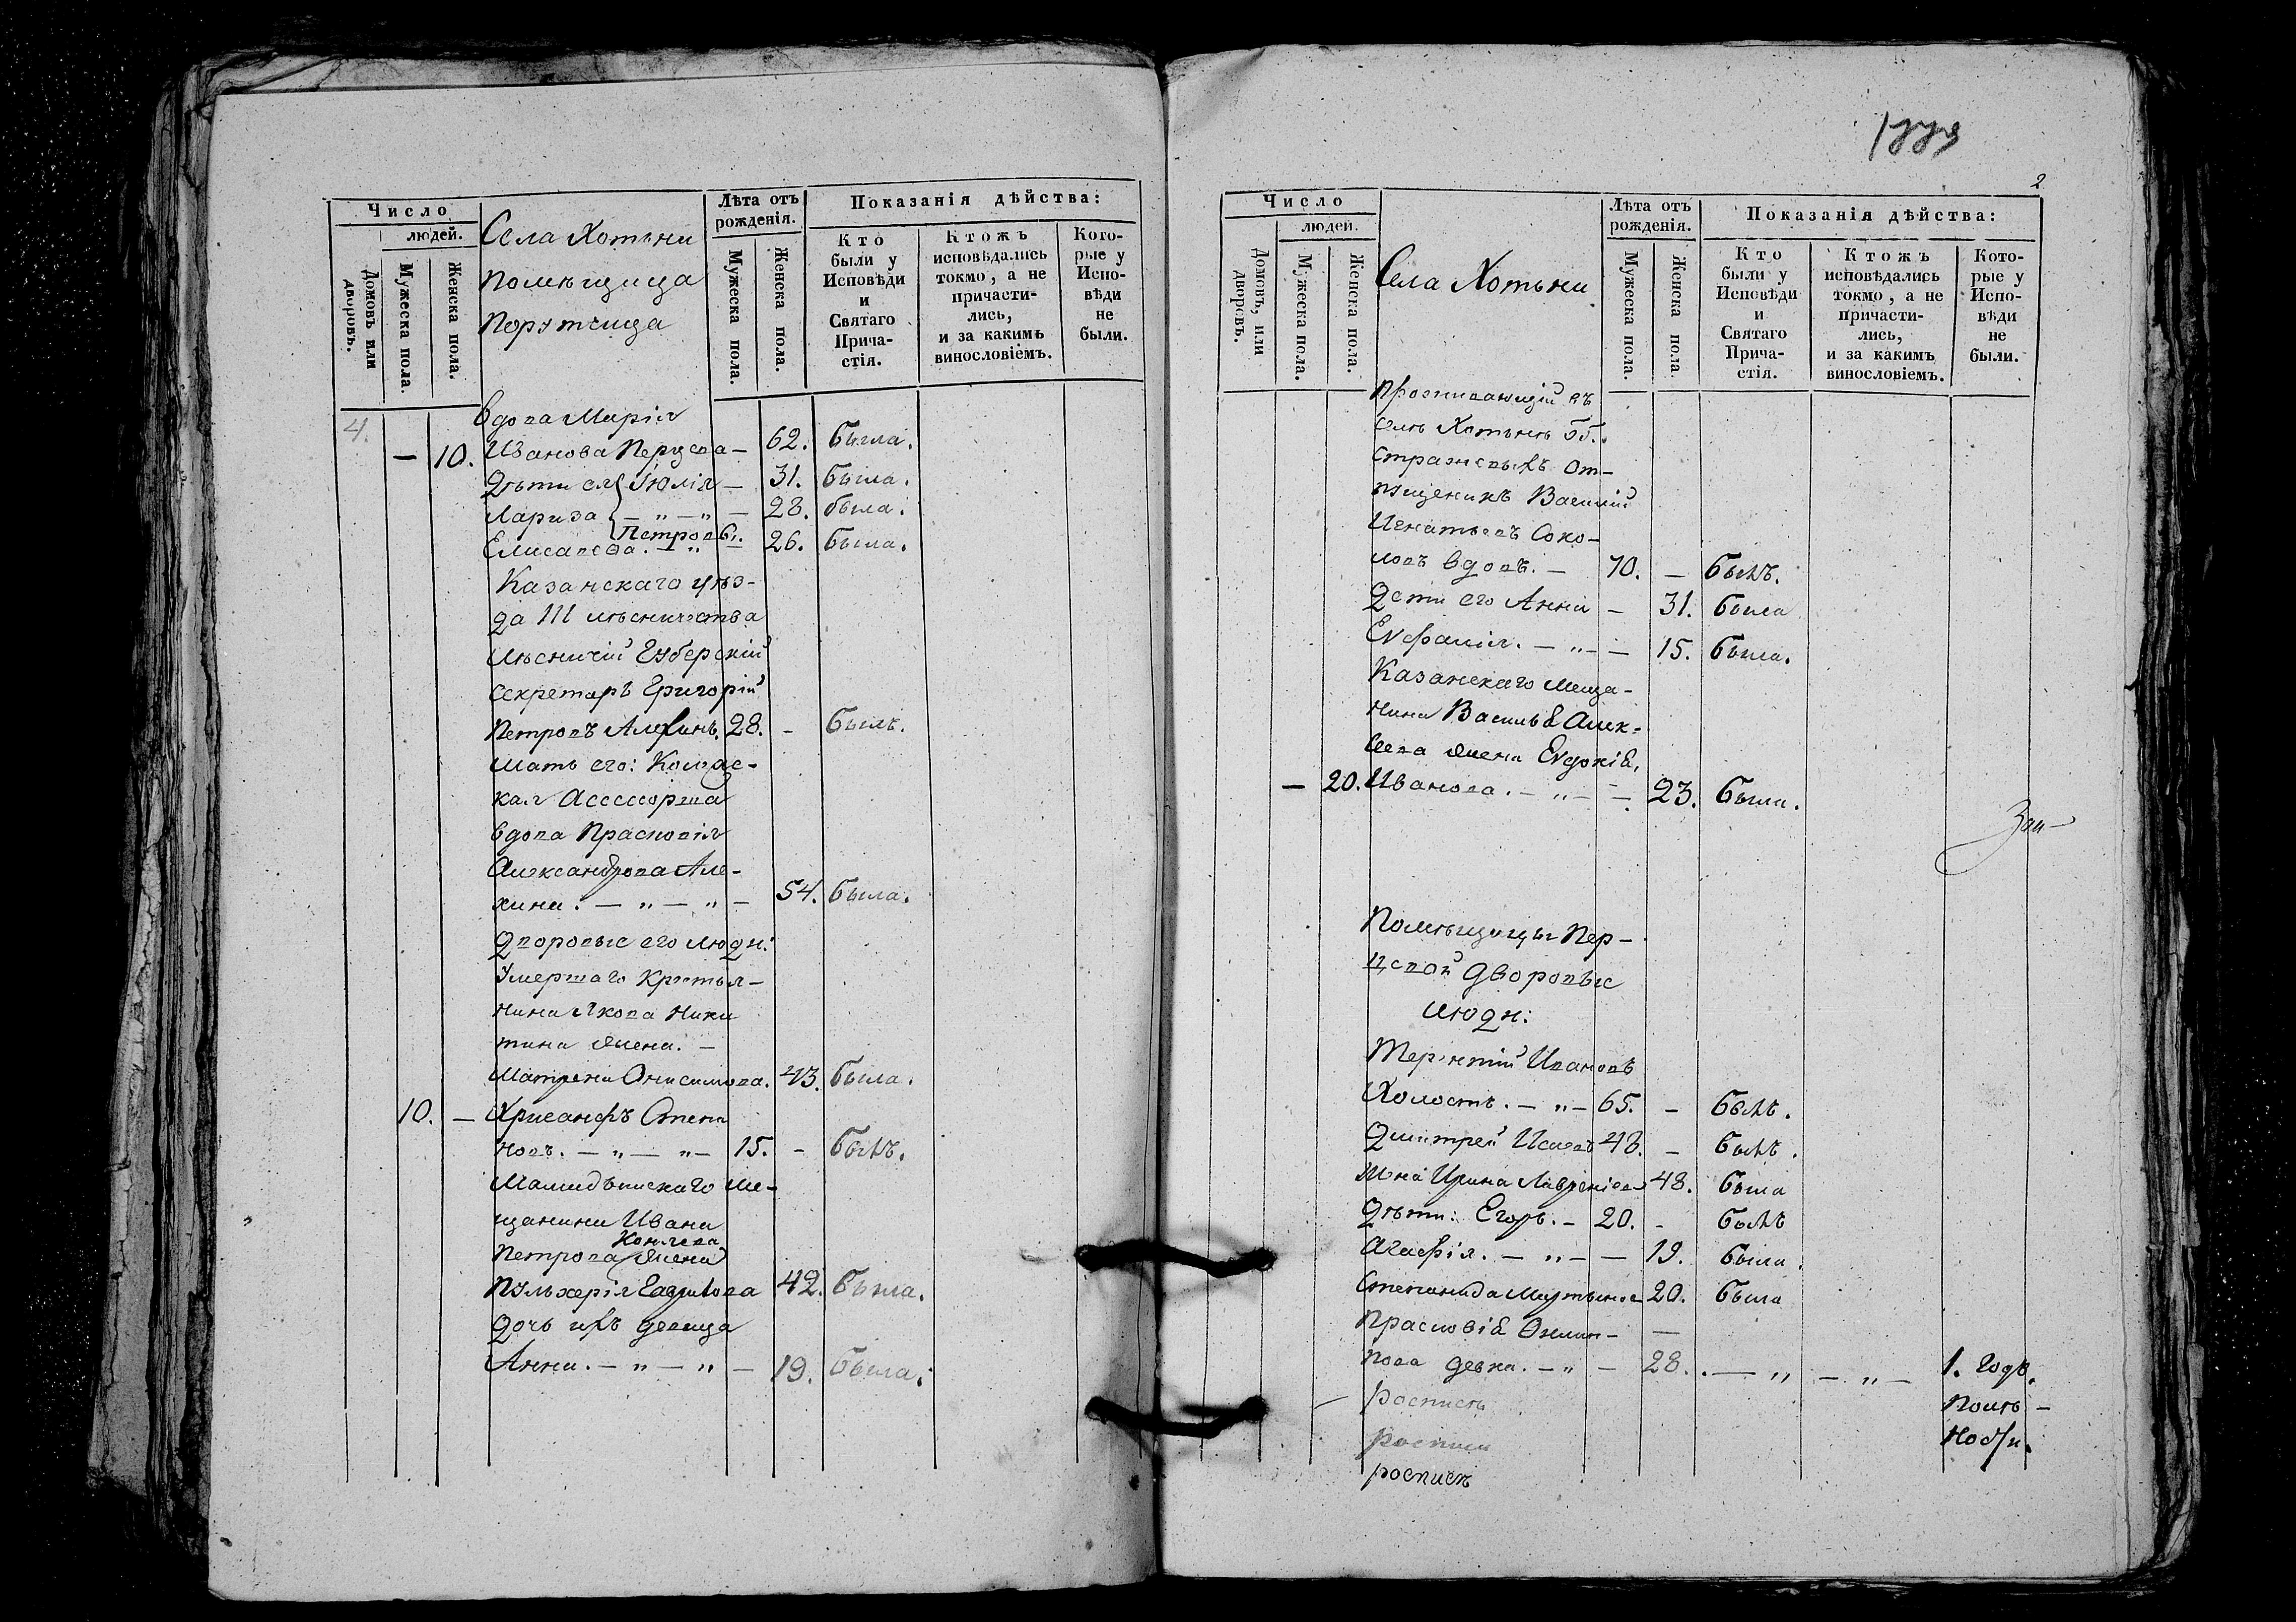 Число
людей.
Домовъ или
дворовъ.
Мужеска пола.
Женска пола.
Села Хотьни
помѣщица
порутчица
Лѣта отъ
рожденія.
Мужеска пола.
Женска пола.
Показанія дѣйства:
Кто
были у
Исповѣди
и
Святаго
Прича-
стія.
Ктожъ
исповѣдались
токмо, а не
причасти-
лись,
и за какимъ
винословіемъ.
Кото-
рые у
Испо-
вѣди
не
были.
вдова Марія
4. — 10. Иванова Перцова — 62. была.
Дѣти ея Юлія — 31. была.
Лариза — „ — „ — 28. была.
Петровы.
Елисавета. — „ — 26. была.
Казанскаго уѣз-
да III лѣсничества
Лѣсничій Губерскій
секретарь Григорій
Петровъ Алехинъ. 28. - былъ.
мать его: Колѣс-
кая Асессорша
вдова Прасковія
Александрова Але-
хина. — „ — „ — 54. была.
Дворовые его люди:
Умершаго крестья-
нина Якова Ники
тина жена. —
Матрена Онисимова. 43. была.
10. — Хрисанфъ Степа
новъ. — „ — „ — 15. - былъ.
Мамадышскаго ме-
щанина Ивана
Петрова жена
Пульхерія Гаврилова 42. была.
дочь ихъ девица
Анна. — „ — „ — 19. была.
1779
2
Число
людей.
Домовъ, или
дворовъ.
Мужеска пола.
Женска пола.
Села Хотьни
Лѣта отъ
рожденія.
Мужеска пола.
Женска пола.
Показанія дѣйства:
Кто
были у
Исповѣди
и
Святаго
Прича-
стія.
Ктожъ
исповѣдались
токмо, а не
причасти-
лись,
и за какимъ
винословіемъ.
Кото-
рые у
Испо-
вѣди
не
были.
Проживающій въ
селѣ Хотьнѣ
от-
пущеникъ Василій
Игнатьевъ Соко-
ловъ вдовъ. — 70. — былъ.
Дети его Анна — 31. была
Евфалія. — „ — 15. была.
Казанскаго меща-
нина Василья Алек-
сеева жена Евдокія,
— 20. Иванова. — „ — 23. была.
Помѣщицы Пер-
цовой дворовые
люди:
Терентій Ивановъ
Холостъ. — „ — 65. — былъ.
Дмитрей Исаевъ 48. — былъ.
Жена Ирина 48. была
Дѣти: Егоръ. — 20. - былъ
Агафія. — „ — 19. была.
Степанида Мартынова 20. была
Прасковія
нова девка. — „ — 28. — „ — „ — 1. годъ.
роспись
роспись
роспись